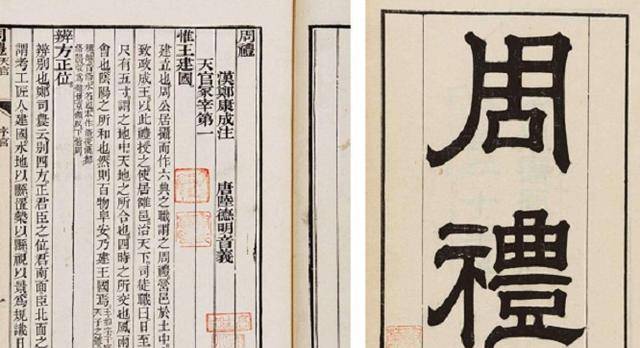 周禮
周禮
漢鄭康成注 唐陸德明音義
天官冢宰第一
惟王建國
建立也周公居攝而作六典之職謂之周禮營邑於土中
致政成王以此禮授之使居雒邑治天下司徒職曰日至
尺有五寸謂之地中天地之所合也四時之所交也風雨
會也陰陽之所和也然則百物阜安乃建王國焉
辨方正位
辨別也鄭司農云別四方正君臣之位君南面臣北面之
謂考工匠人建國水地以縣置槷以縣視以景爲規識日
周禮 天官 序官